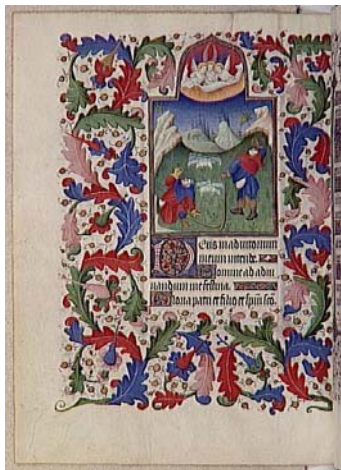 Deus in adiutorium
meum intende.
Domine ad adiu
uandum me festina.
Gloria patri et filio et spiritui scō.